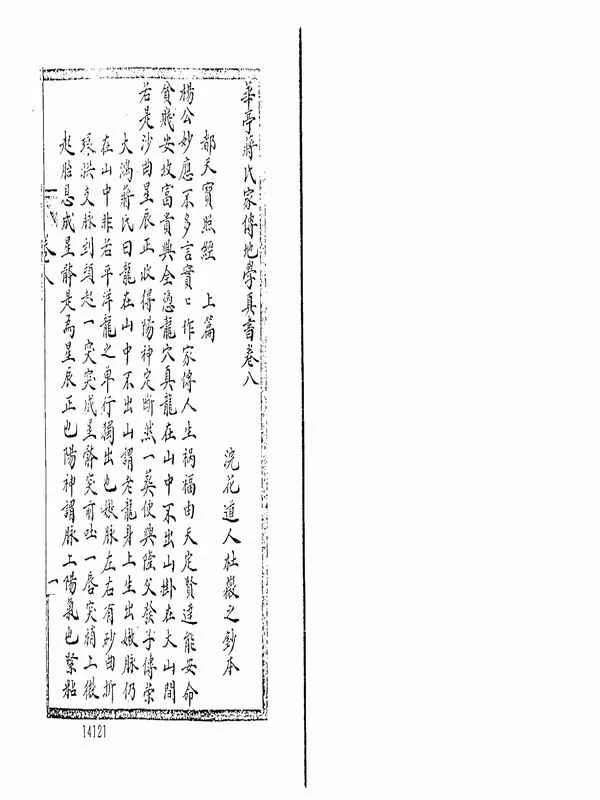 華亭蔣氏家傳地學真書卷八
浣花道人杜嶷之鈔本
都天寶照經　上篇
楊公妙應不多言實〻作家傳人生禍福由天定賢達能安命
貧賤安坟富貴興全憑龍穴真龍在山中不出山掛在大山間
若是沙曲星辰正收得陽神定斷然一葬便興隆父發子傳榮
大鴻蔣氏曰龍在山中不出山謂老龍身上生出嫩脉仍
在山中非若平洋龍之单行獨出也嫩脉左右有砂曲折
環拱文脉到頭起一突突成星體突前吐一唇突稍上微
起胎息成星體是為星辰正也陽神謂脉上陽氣也緊貼
卷八
一
14121